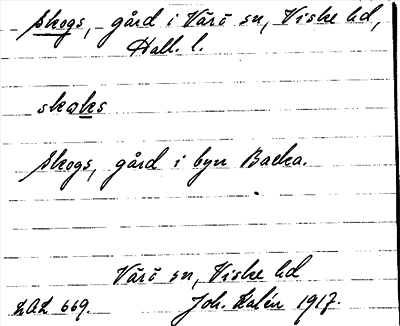 Skogs, gård i Värö sn, Viske hd,
Hall. l.
skåks
Skogs, gård i byn Backa.
Värö sn, Viske hd
LAL 669. Joh. Kalén 1917.